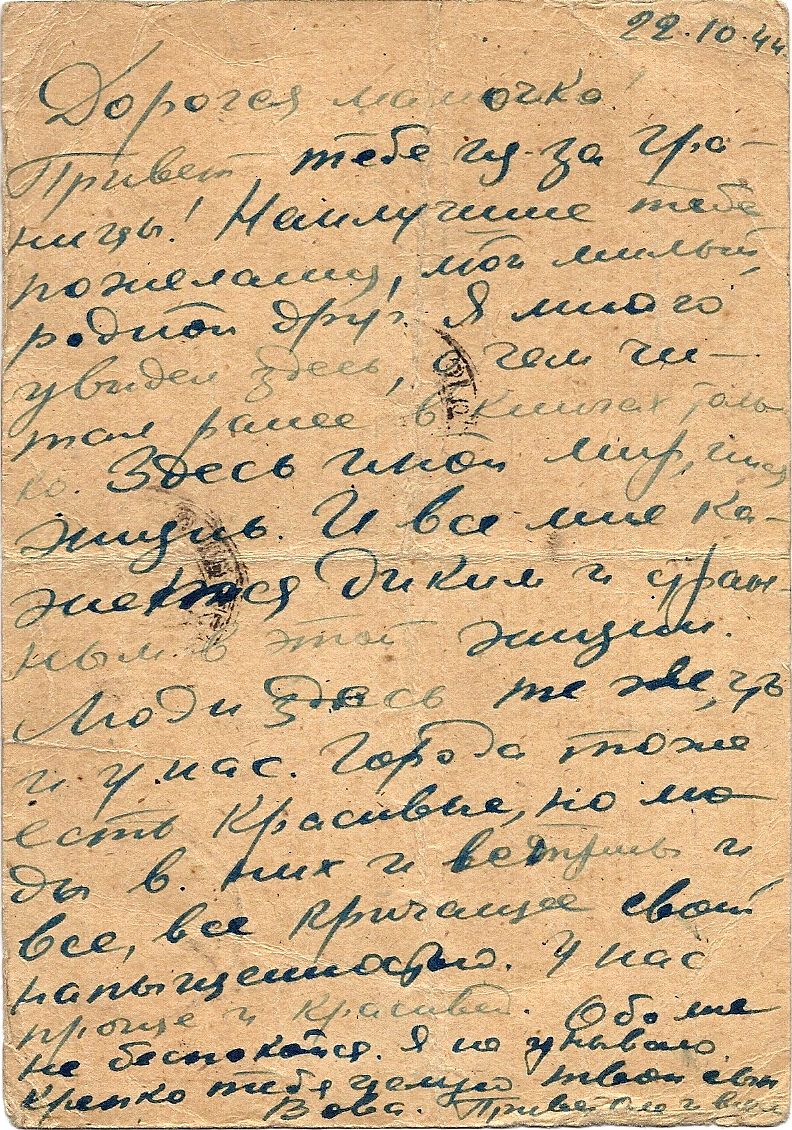 22.10.44.
Дорогая мамочка!
Привет тебе из-за гра-
ницы! Наилучшие тебе
пожелания, мой милый,
родной друг. Я много
увидел здесь, о чем чи-
тал ранее в книгах толь-
ко. Здесь иной мир, иная
жизнь. И все мне ка-
жется диким и стран-
ным в этой жизни.
Люди здесь те же, что
и у нас. Города тоже
есть красивые, но мо-
ды в них и витрины и
все, все кричащее своей
напыщенностью. У нас
проще и красивей. Обо мне
не беспокойся. Я не унываю
крепко тебя целую твой сын
Вова. Привет